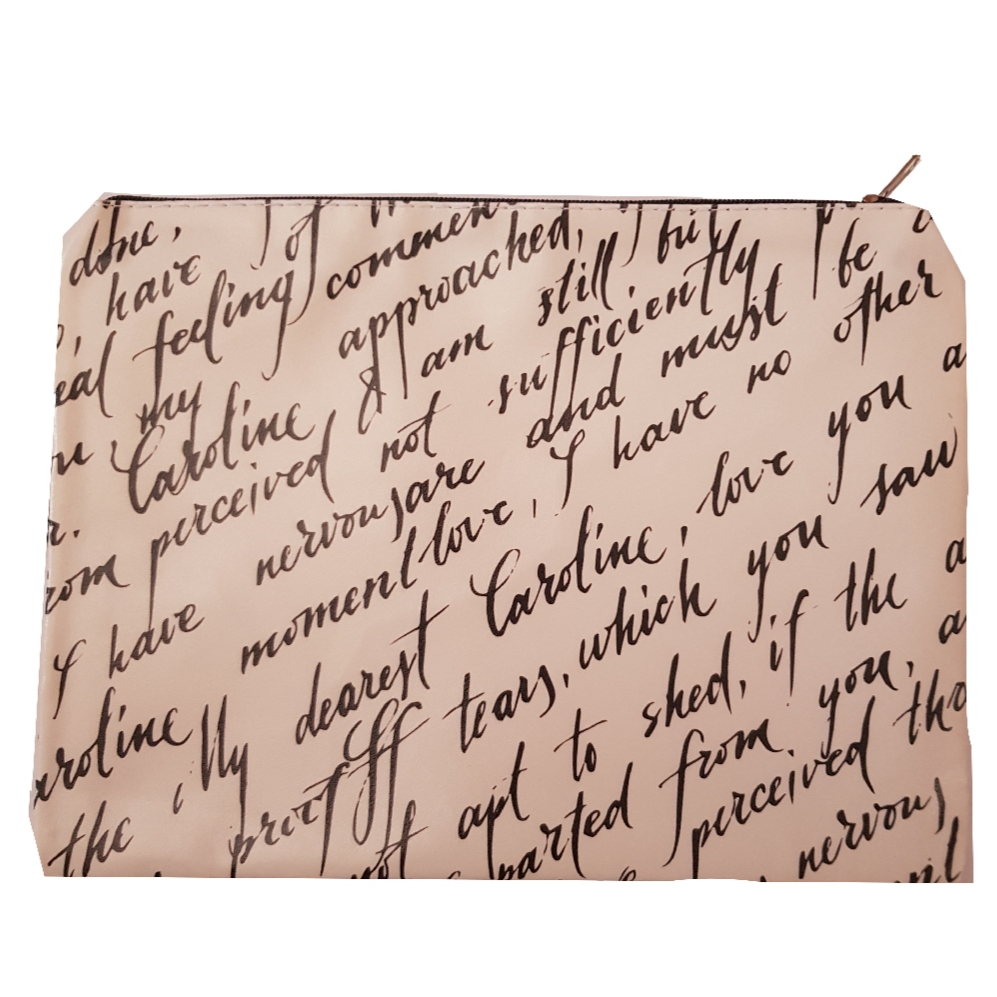 done, of comment
have approached, but be
real feeling still,
my am sufficiently other
Caroline & not and must
perceived have no
from nervous, are I you
I have moment love, love saw
dearest Caroline, you
Caroline, My tears, which the
the proof of to shed, if
not apt from you,
parted perceived tho
nervous